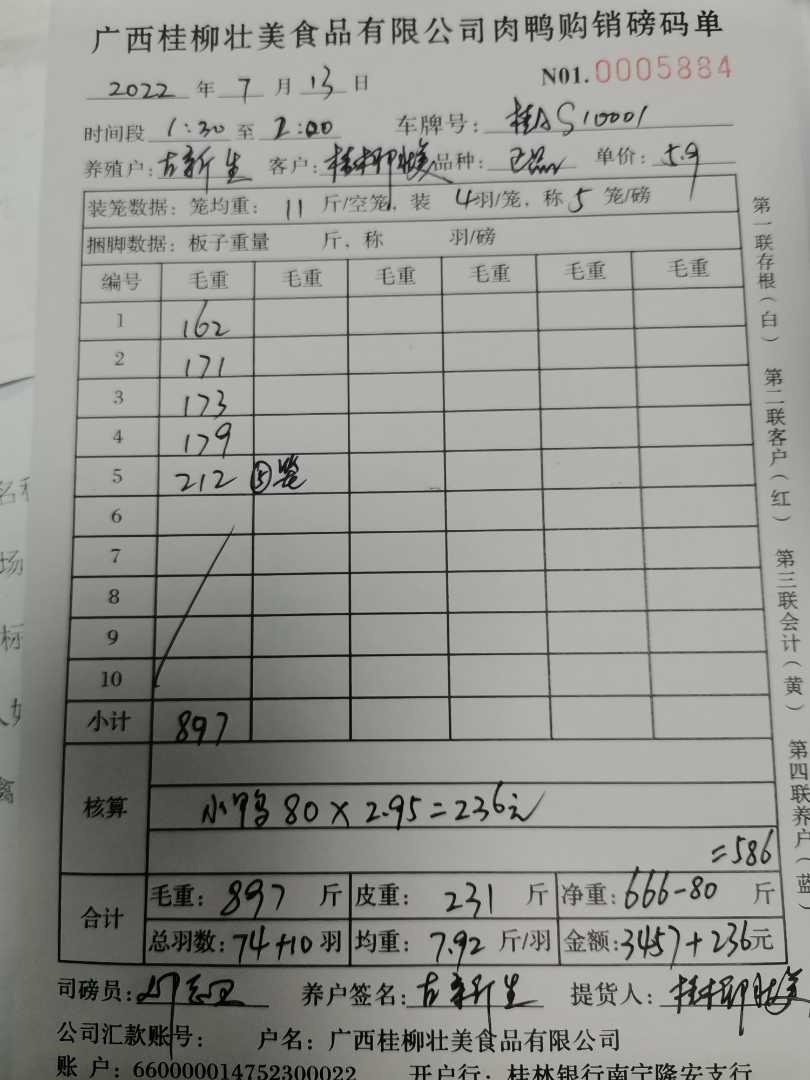 广西桂柳壮美食品有限公司肉鸭购销磅码单
2022 年 7 月 13 日 N01. 0005884
时间段 1:30 至 2:00 车牌号: 桂AS10001
养殖户: 古新生 客户: 桂柳壮美 品种: 单价: 5.9
装笼数据: 笼均重: 11 斤/空笼, 装 4羽/笼, 称 5 笼/磅
捆脚数据: 板子重量 斤, 称 羽/磅
编号 毛重 毛重 毛重 毛重 毛重 毛重
1 162
2 171
3 173
4 179
5 212 ⑤笼
6
7
8
9
10
小计 897
核算
小鸭 80 × 2.95 = 236元
=586
合计
毛重: 897 斤 皮重: 231 斤 净重: 666-80 斤
总羽数: 74+10 羽 均重: 7.92 斤/羽 金额: 3457+236元
司磅员: 养户签名: 古新生 提货人: 桂柳壮美
公司汇款账号: 户名: 广西桂柳壮美食品有限公司
账 户: 660000014752300022 开户行: 桂林银行南宁隆安支行
第一联存根(白) 第二联客户(红) 第三联会计(黄) 第四联养户(蓝)
名称
场
标
禽